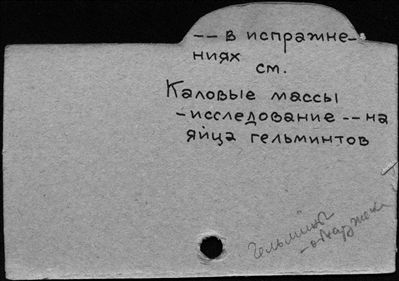 -- в испражне-
ниях
см.
Каловые массы
-исследование -- на
яйца гельминтов
Гельминт